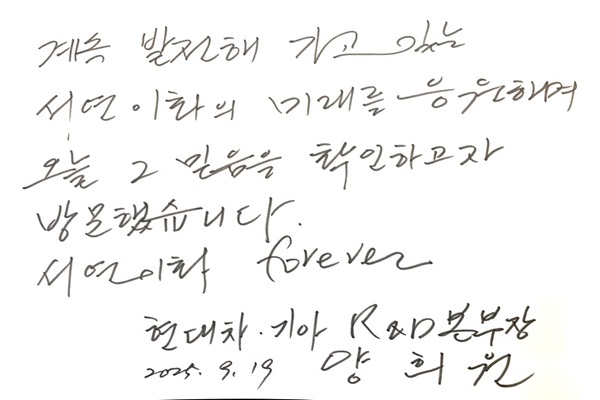 계속 발전해 가고 있는
서연이화의 미래를 응원하며
오늘 그 믿음을 확인하고자
방문했습니다.
서연이화 forever
현대차·기아 R&D본부장
2025. 9. 19 양희원